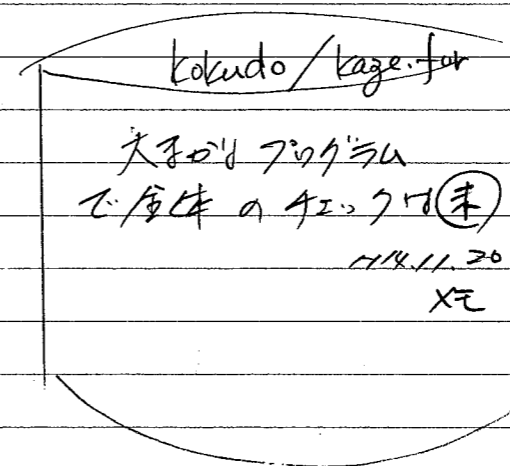 kokudo/kaze.for
大まかな プログラム
で 全体 の チェック は 未
H14.11.20
メモ